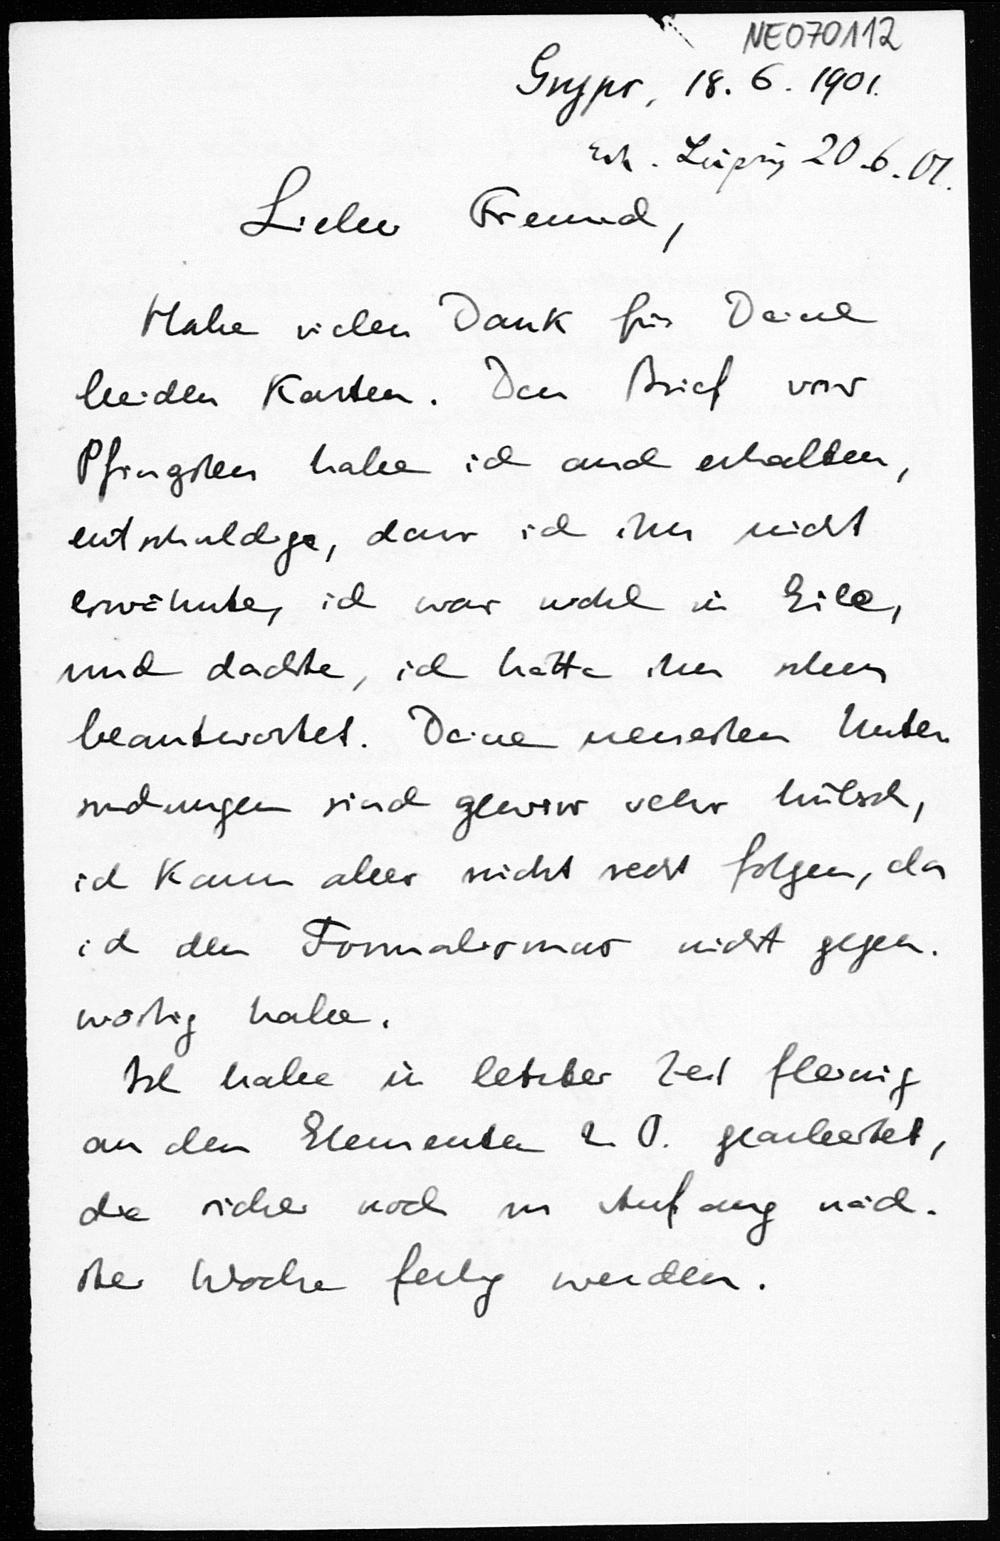 NE070112
Gryps, 18. 6. 1901.
Erh. Leipzig 20.6.01.
Lieber Freund,
Habe vielen Dank für Deine
beiden Karten. Den Brief vor
Pfingsten habe ich auch erhalten,
entschuldige, dass ich ihn nicht
erwähnte, ich war wohl in Eile,
und dachte, ich hätte ihn schon
beantwortet. Deine neuesten Unter
suchungen sind gewiss sehr hübsch,
ich kann aber nicht recht folgen, da
ich den Formalismus nicht gegen.
wärtig habe.
Ich habe in letzter Zeit fleissig
an den Elementen 2. O. gearbeitet,
die sicher noch im Anfang näch.
ster Woche fertig werden.